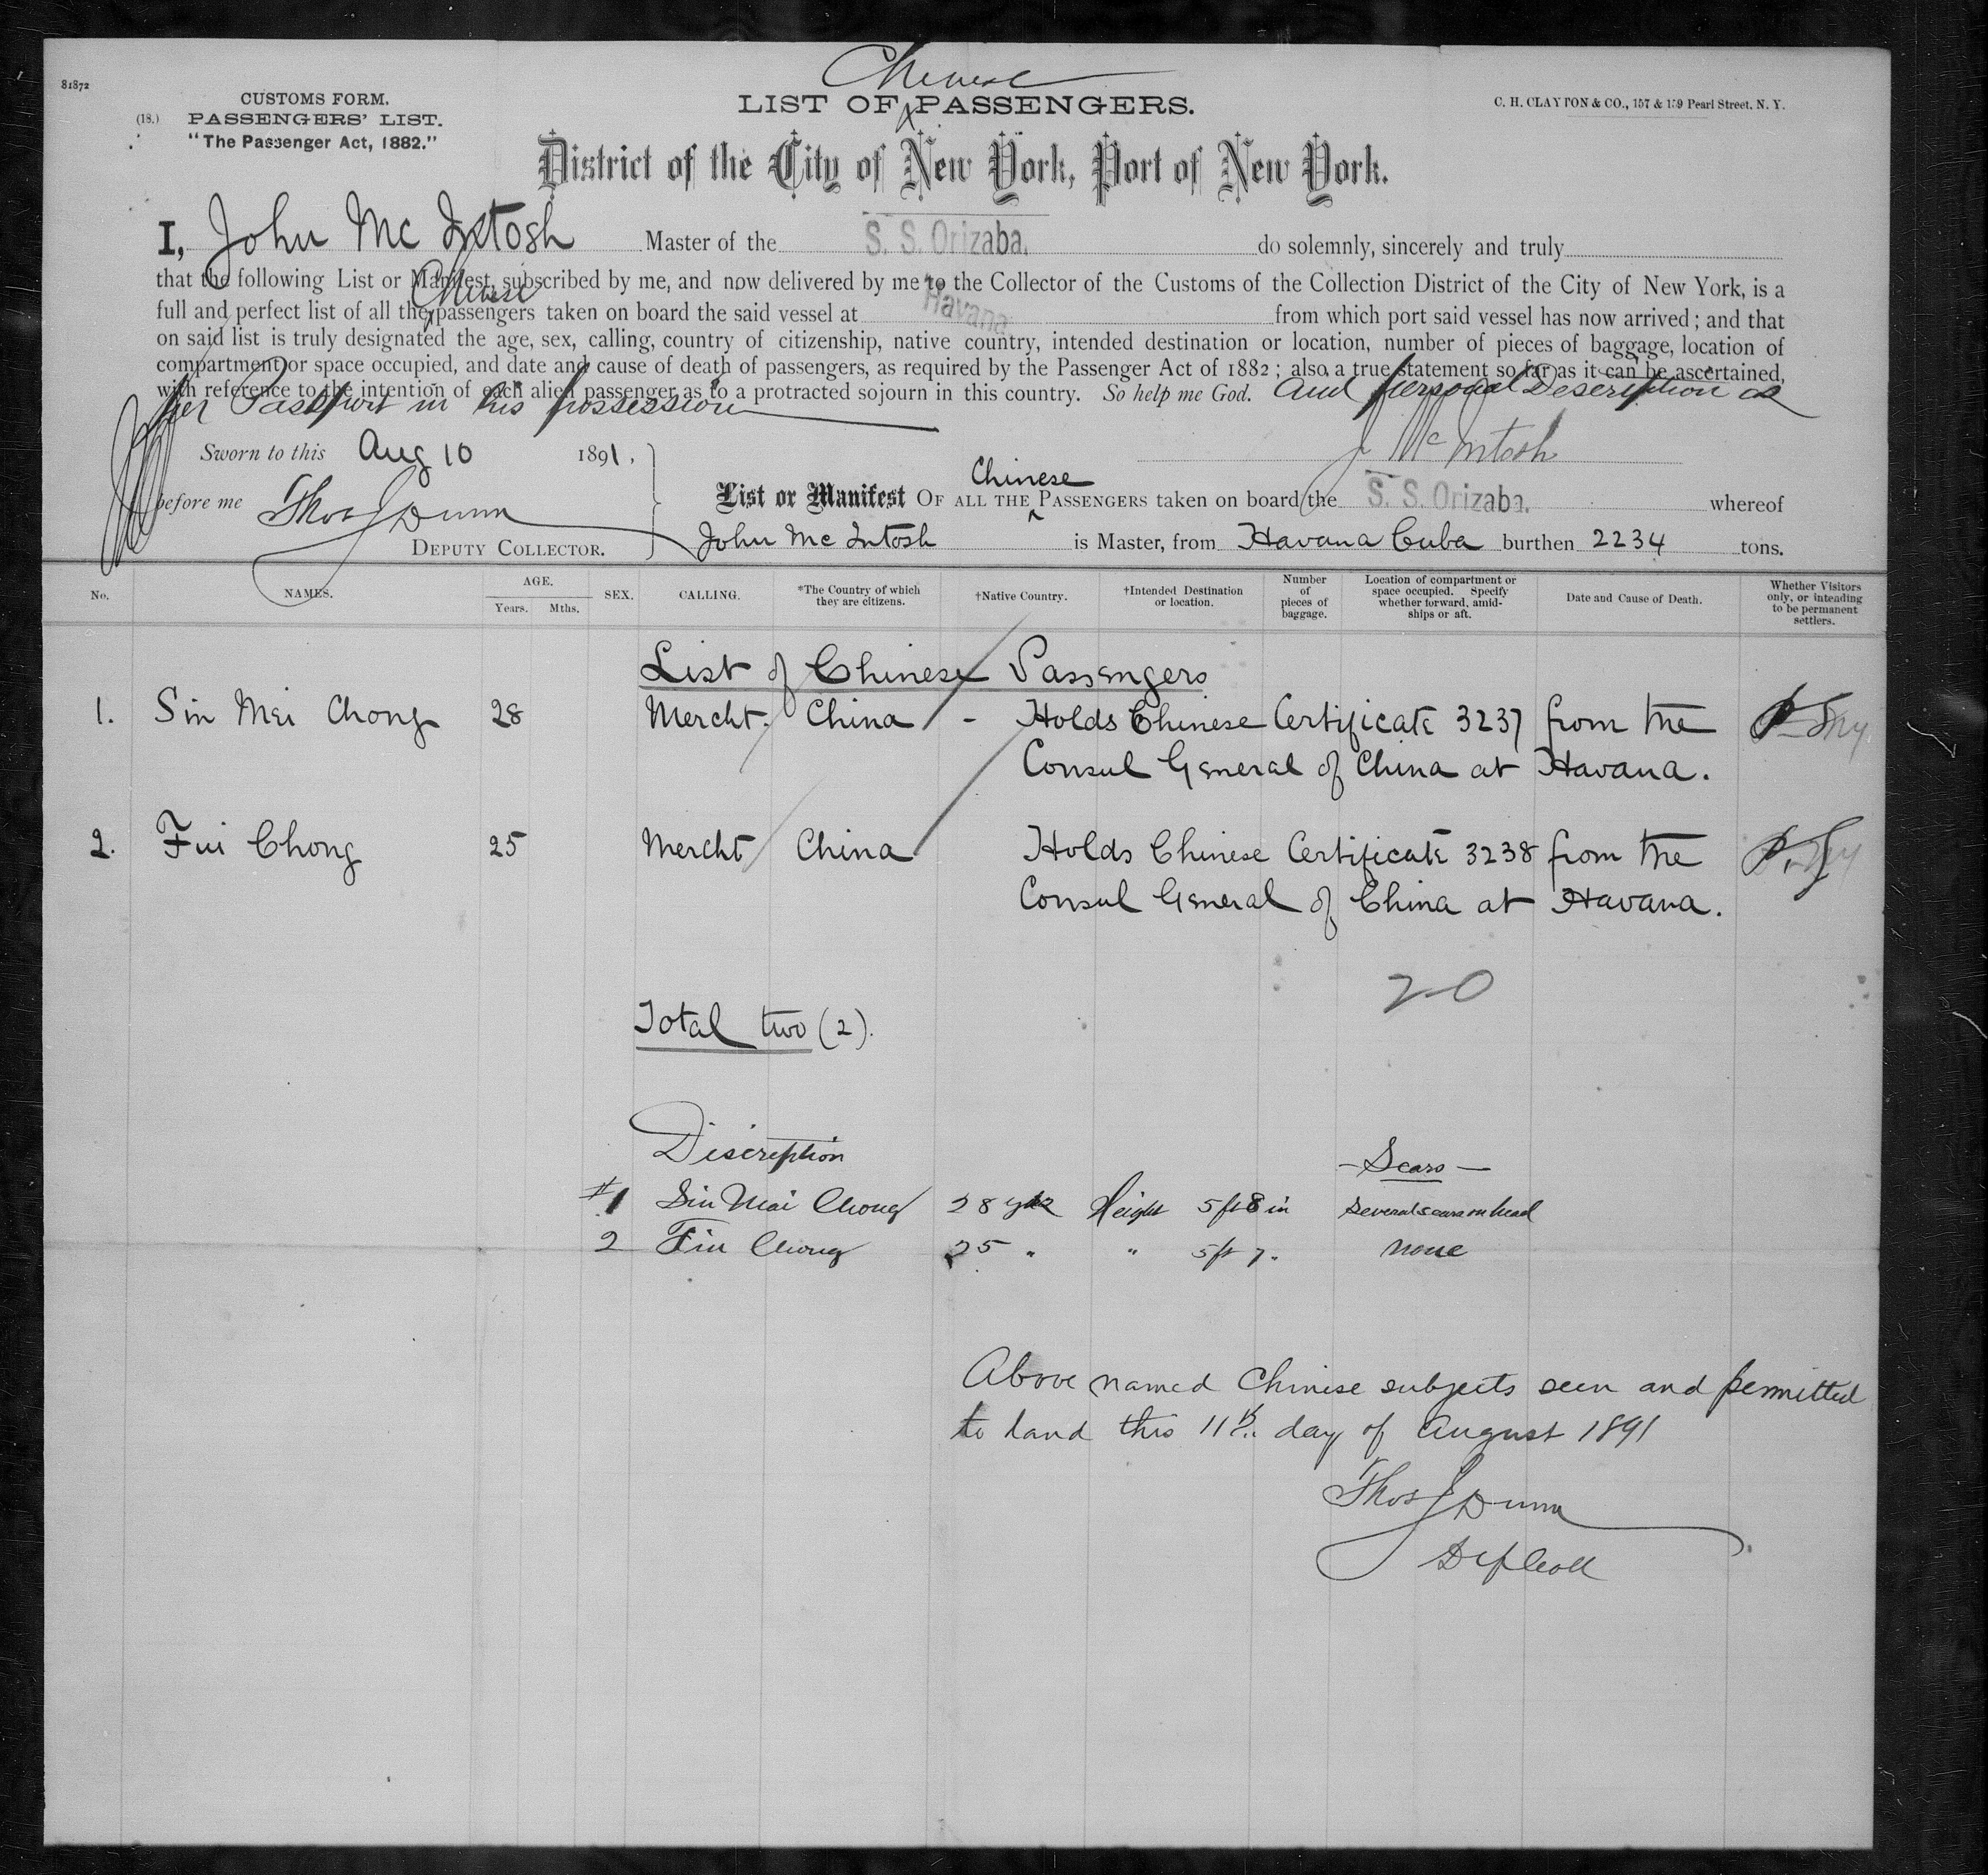 81872
CUSTOMS FORM.
(18.) PASSENGERS' LIST.
"The Passenger Act, 1882."
Chinese
LIST OF PASSENGERS.
C. H. CLAYTON & CO., 157 & 159 Pearl Street, N. Y.
District of the City of New York, Port of New York.
I, John Mc Intosh Master of the S. S. Orizaba. do solemnly, sincerely and truly
that the following List or Manifest, subscribed by me, and now delivered by me to the Collector of the Customs of the Collection District of the City of New York, is a
Chinese
full and perfect list of all the passengers taken on board the said vessel at Havana from which port said vessel has now arrived; and that
on said list is truly designated the age, sex, calling, country of citizenship, native country, intended destination or location, number of pieces of baggage, location of
compartment or space occupied, and date and cause of death of passengers, as required by the Passenger Act of 1882; also, a true statement so far as it can be ascertained,
with reference to the intention of each alien passenger as to a protracted sojourn in this country. So help me God. and personal Description as
per Passport in his possession
Sworn to this Aug 10 1891,
J McIntosh
before me Thos J Dunn
DEPUTY COLLECTOR.
Chinese
List or Manifest OF ALL THE PASSENGERS taken on board the S. S. Orizaba. whereof
John Mc Intosh is Master, from Havana Cuba burthen 2234 tons.
No. NAMES. AGE. Years. Mths. SEX. CALLING. *The Country of which they are citizens. †Native Country. †Intended Destination or location. Number of pieces of baggage. Location of compartment or space occupied. Specify whether forward, amidships or aft. Date and Cause of Death. Whether Visitors only, or intending to be permanent settlers.
List of Chinese Passengers
1. Sin Mei Chong 28 Mercht. China - Holds Chinese Certificate 3237 from the
Consul General of China at Havana.
2. Fui Chong 25 Mercht China Holds Chinese Certificate 3238 from the
Consul General of China at Havana.
20
Total two (2).
Discription
- Scars -
#1 Sin Mai Chong 28 yrs Height 5 ft 8 in Several scars on head
2 Fui Chong 25 " " 5 ft 7 " None
Above named Chinese subjects seen and permitted
to land this 11th day of August 1891
Thos J Dunn
Dep Coll